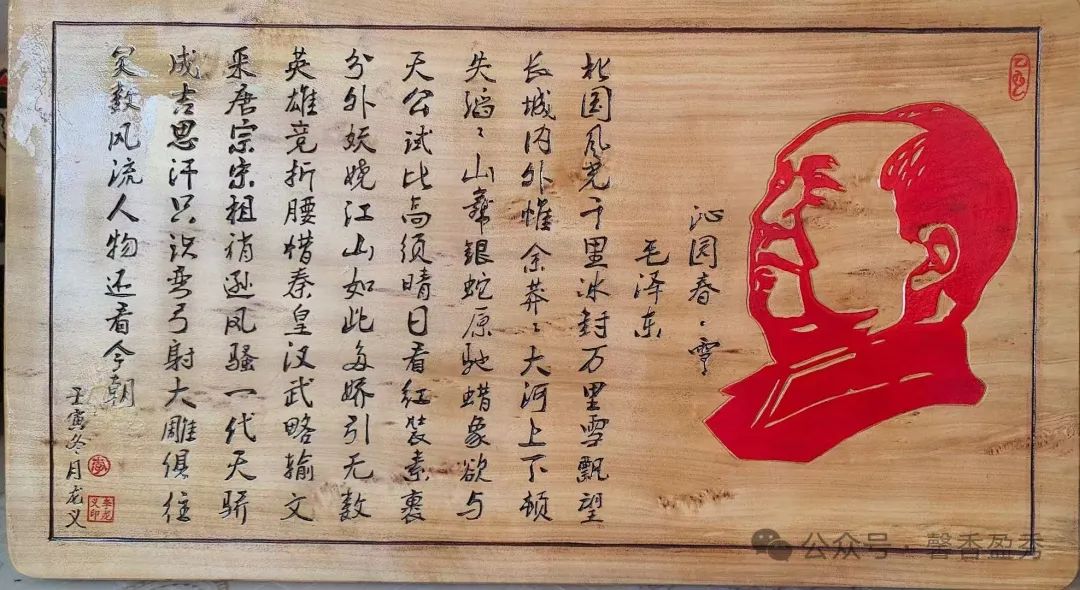 沁园春·雪
毛泽东
北国风光千里冰封万里雪飘望
长城内外惟余莽〻大河上下顿
失滔〻山舞银蛇原驰蜡象欲与
天公试比高须晴日看红装素裹
分外妖娆江山如此多娇引无数
英雄竞折腰惜秦皇汉武略输文
采唐宗宋祖稍逊风骚一代天骄
成吉思汗只识弯弓射大雕俱往
矣数风流人物还看今朝
壬寅冬月龙义
李
李龙义印
公众号·馨香盈秀